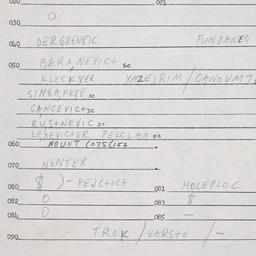 020 021
030 0
040 DERGRENSIC FUNDANEN
050 BARANEVICT SC
KLECKSER XAZEIRIM / GANOVMT
SINGA,FKEE SC
GANCEVICT SC
RUSTNEVIC SC
LEXEVICTER PELCLAX SC
060 MOUNT (075(152
070 NENTER
080 $ ) - PEJCTICT 081 HOCEPLOC
082 0 083 $
084 0 085 —
090 TROK / VARSTE / -